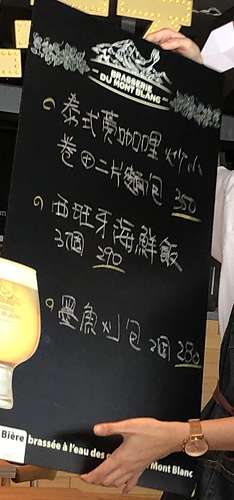 BRASSERIE
DU MONT BLANC
泰式黃咖哩炒小
卷+二片麵包 350
西班牙海鮮飯
3個 290
墨魚刈包 2個 250
Bière brassée à l'eau des Mont Blanc